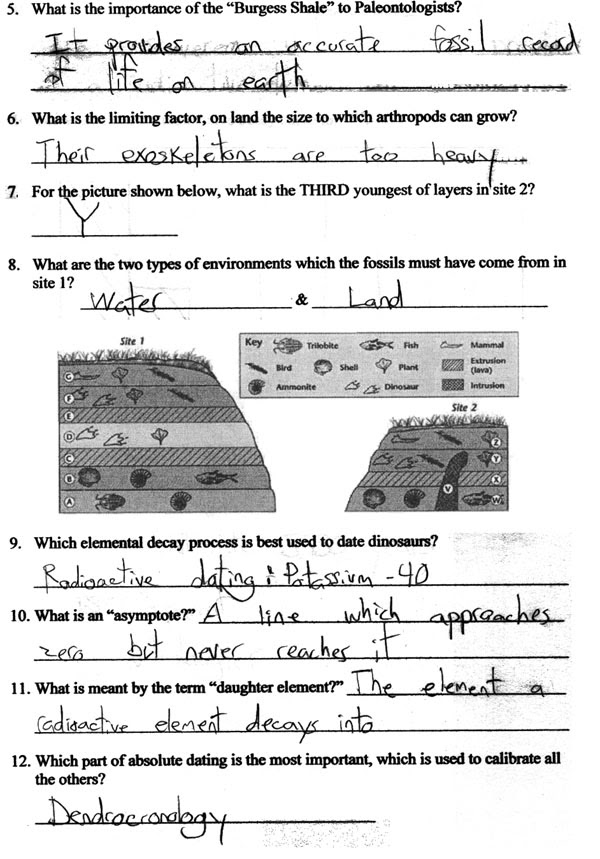 5. What is the importance of the “Burgess Shale” to Paleontologists?
It provides an accurate fossil record
of life on earth
6. What is the limiting factor, on land the size to which arthropods can grow?
Their exoskeletons are too heavy
7. For the picture shown below, what is the THIRD youngest of layers in site 2?
Y
8. What are the two types of environments which the fossils must have come from in
site 1?
Water & Land
Site 1
Key Trilobite Fish Mammal
Bird Shell Plant Extrusion
(lava)
Ammonite Dinosaur Intrusion
Site 2
G
F
E
D
C
B
A
Z
Y
X
V
W
9. Which elemental decay process is best used to date dinosaurs?
Radioactive dating : Potassium -40
10. What is an “asymptote?” A line which approaches
zero but never reaches it
11. What is meant by the term “daughter element?” The element a
radioactive element decays into
12. Which part of absolute dating is the most important, which is used to calibrate all
the others?
Dendrocronology